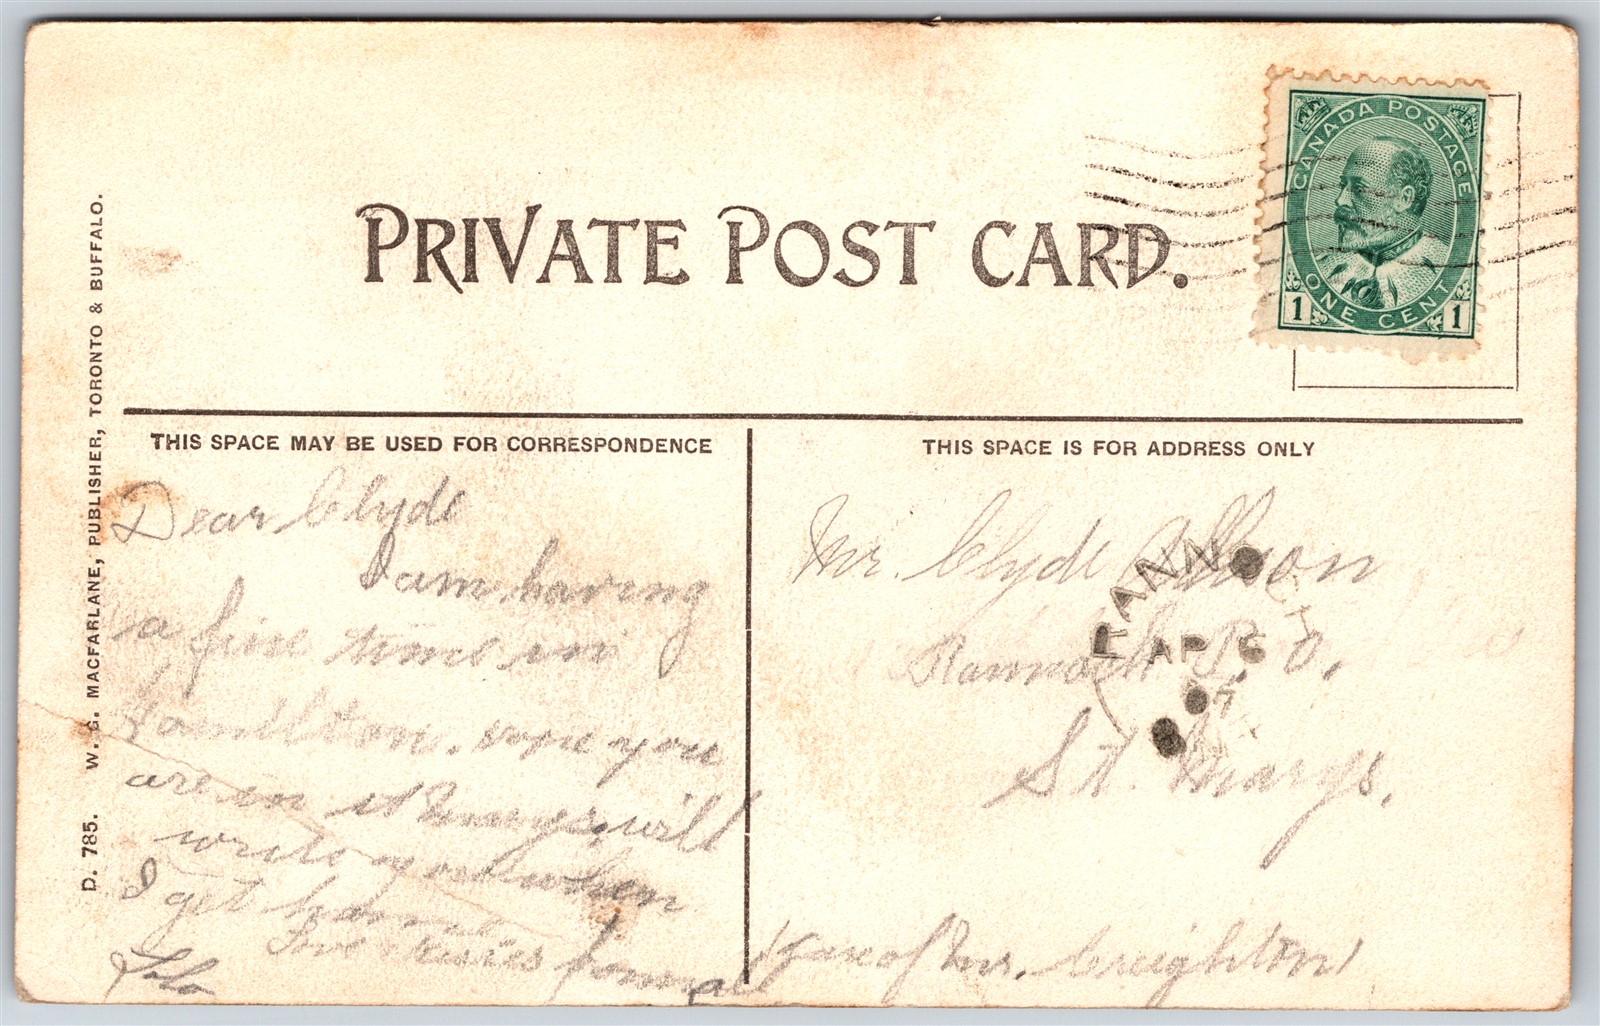 PRIVATE POST CARD.
CANADA POSTAGE
ONE CENT
1 1
D. 785. W. G. MACFARLANE, PUBLISHER, TORONTO & BUFFALO.
THIS SPACE MAY BE USED FOR CORRESPONDENCE
Dear Clyde
I am having
a fine time in
Hamilton. you
are in St Marys. will
write you when
I get home
kisses from all
THIS SPACE IS FOR ADDRESS ONLY
Mr. Clyde
Rannoch P. O.
St. Marys.
Care of Mr. Creighton
RANNO
AP 6